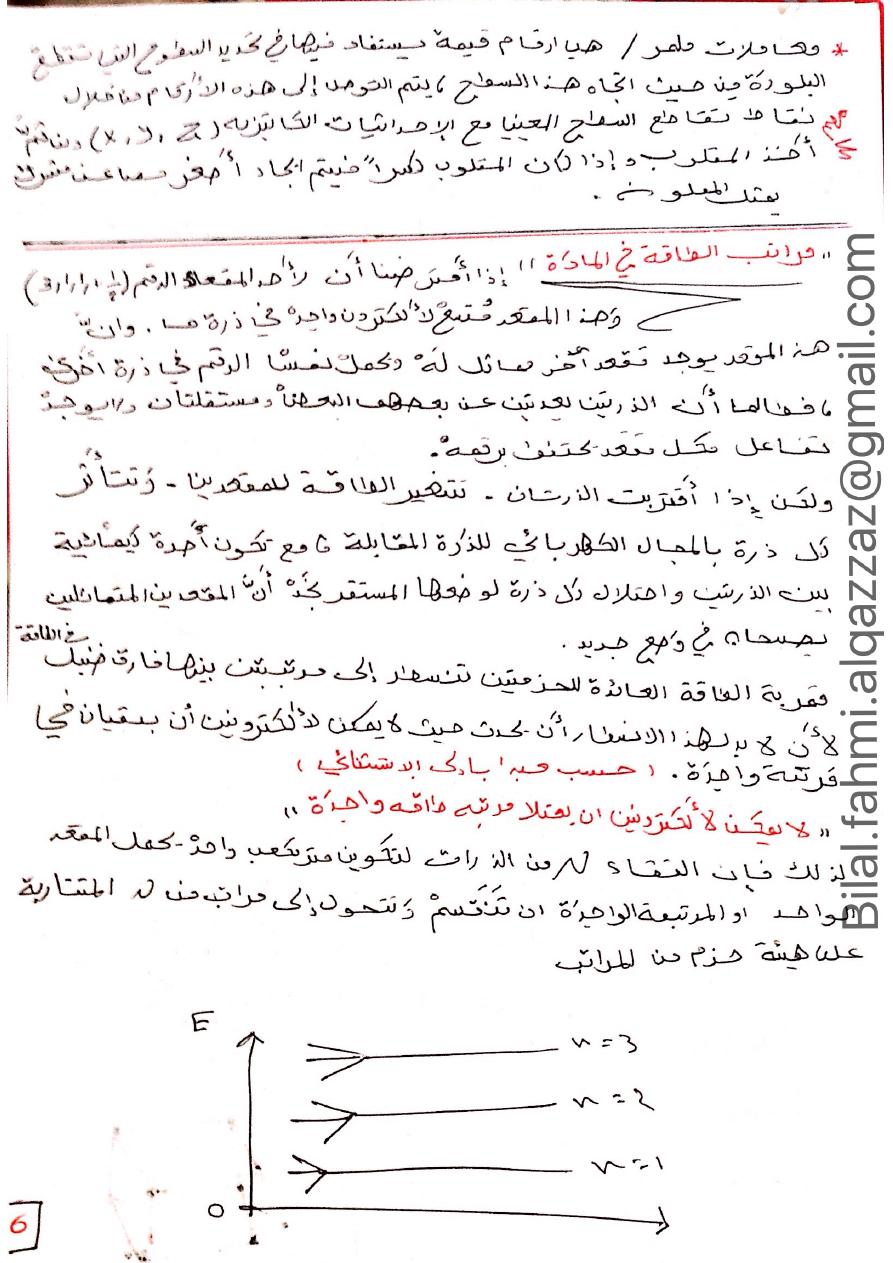 * معاملات ملمر / هي ارقام قيمة يستفاد فيها في تحديد السطوح التي تتقاطع
البلورة من حيث اتجاه هذا السطح ، يتم التوصل إلى هذه الأرقام من خلال
نقاط تقاطع السطح المعني مع الإحداثيات الكارتيزيه (x, y, z) ومن ثمَّ
أخذ المقلوب و إذا كان المقلوب كسراً فيتم ايجاد أصغر مشترك
" مراتب الطاقة في المادة " إذا أفترضنا أن لأحد المقعد الرقم
وهذا المقعد مُتبع لألكترون واحد في ذرة ما . وانَّ
هذا الموقع يوجد مقعد آخر مماثل لهُ ويحمل نفس الرقم في ذرة أخرى
، فطالما أن الذرتين بعيدتين عن بعضهما البعض ومستقلتان ولا يوجد
تفاعل فكل مقعد يحتفظ برقمه .
ولكن إذا أقتربت الذرتان - تتغير الطاقة للمقعدين - وتتأثر
كل ذرة بالمجال الكهربائي للذرة المقابلة ، مع تكون أصرة كيميائية
بين الذرتين و احتلال كل ذرة لوضعها المستقر نجد أنَّ المقعدين المتماثلين
يصبحان في وضع جديد .
فمرتبة الطاقة العائدة للحزمتين تنشطر إلى مرتبتين بينهما فارق ضئيل في الطاقة
لأن لا بد لهذا الانشطار أن يحدث حيث لا يمكن لألكترونين أن يبقيان في
مرتبة واحدة . ( حسب مبدا باولي الاستثنائي )
" لا يمكن لألكترونين ان يحتلا مرتبه طاقه واحدة "
لذلك فإن التقاء من الذرات لتكوين متر مكعب واحد يجعل المقعد
الواحد او المرتبة الواحدة ان تنقسم وتتحول إلى مراتب من المتقاربة
على هيئة حزم من المراتب
E
n = 3
n = 2
n = 1
0
6
Bilal.fahmi.alqazzaz@gmail.com